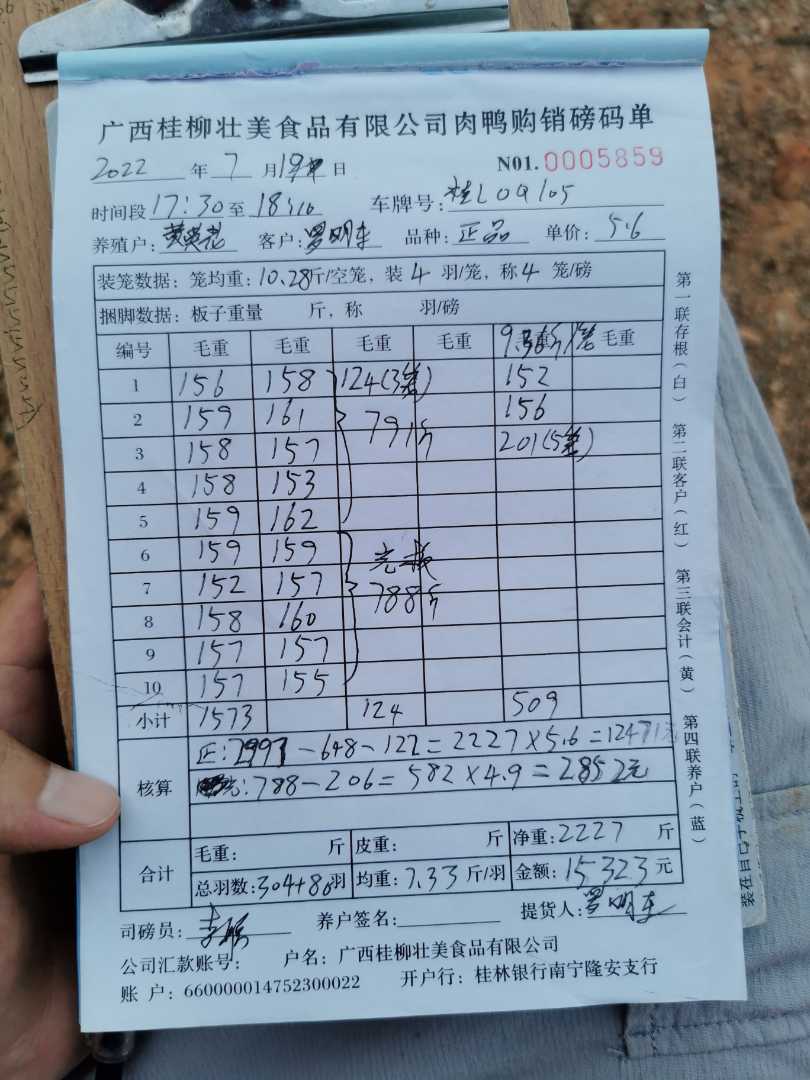 广西桂柳壮美食品有限公司肉鸭购销磅码单
2022 年 7 月 19 日 N01.0005859
时间段 17:30 至 18:10 车牌号: 桂L09105
养殖户: 客户: 罗明东 品种: 正品 单价: 5.6
装笼数据: 笼均重: 10.28 斤/空笼, 装 4 羽/笼, 称 4 笼/磅
捆脚数据: 板子重量 斤, 称 羽/磅
编号 毛重 毛重 毛重 毛重 毛重
1 156 158 124(3笼) 152
2 159 161 791斤 156
3 158 157 201(5笼)
4 158 153
5 159 162
6 159 159
7 152 157 788斤
8 158 160
9 157 157
10 157 155
小计 1573 124 509
核算 正: 2997-648-122=2227×5.6=12471元
788-206=582×4.9=2852元
合计 毛重: 斤 皮重: 斤 净重: 2227 斤
总羽数: 304+80羽 均重: 7.33 斤/羽 金额: 15323 元
司磅员: 养户签名: 提货人: 罗明东
公司汇款账号: 户名: 广西桂柳壮美食品有限公司
账 户: 660000014752300022 开户行: 桂林银行南宁隆安支行
第一联存根(白) 第二联客户(红) 第三联会计(黄) 第四联养户(蓝)